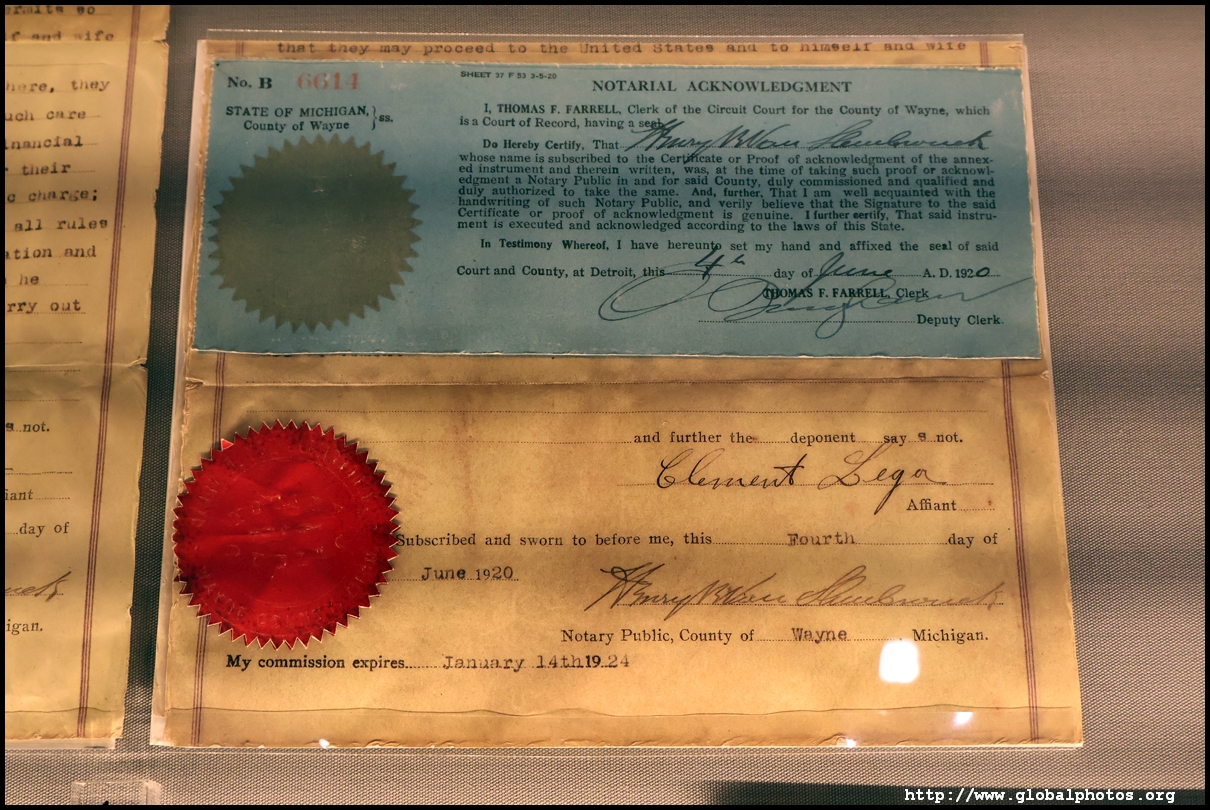 ermits so
f and wife
here, they
uch care
inancial
their
c charge;
all rules
ation and
he
rry out
s not.
iant
day of
igan.
that they may proceed to the United States and to himself and wife
No. B 6614
SHEET 37 F 53 3-5-20
NOTARIAL ACKNOWLEDGMENT
STATE OF MICHIGAN, } ss.
County of Wayne
I, THOMAS F. FARRELL, Clerk of the Circuit Court for the County of Wayne, which
is a Court of Record, having a seal,
Do Hereby Certify, That Henry B. Van
whose name is subscribed to the Certificate or Proof of acknowledgment of the annex-
ed instrument and therein written, was, at the time of taking such proof or acknowl-
edgment a Notary Public in and for said County, duly commissioned and qualified and
duly authorized to take the same. And, further, That I am well acquainted with the
handwriting of such Notary Public, and verily believe that the Signature to the said
Certificate or proof of acknowledgment is genuine. I further certify, That said instru-
ment is executed and acknowledged according to the laws of this State.
In Testimony Whereof, I have hereunto set my hand and affixed the seal of said
Court and County, at Detroit, this 4th day of June A. D. 1920
THOMAS F. FARRELL, Clerk
Deputy Clerk.
and further the deponent say s not.
Clement Lega
Affiant
Subscribed and sworn to before me, this Fourth day of
June 1920
Henry B. Van
Notary Public, County of Wayne Michigan.
My commission expires January 14th 1924
http://www.globalphotos.org